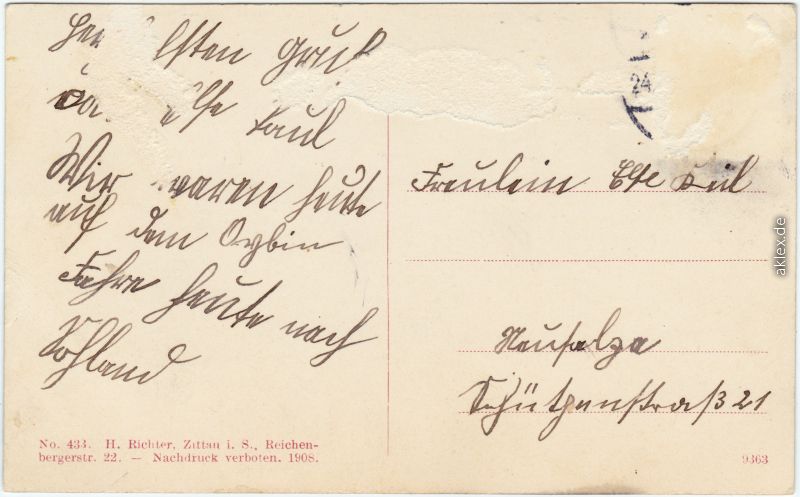 Gruß
Paul
Wir waren heute
auf dem Oybin
Fahre heute nach
Sohland
24
Fräulein Else
Neusalza
Schützenstraß 21
No. 433. H. Richter, Zittau i. S., Reichen-
bergerstr. 22. — Nachdruck verboten. 1908.
9363
aklex.de